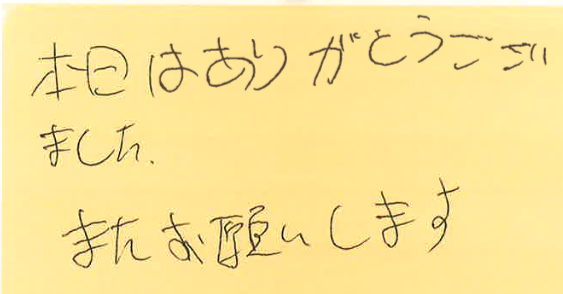 本日はありがとうござい
ました.
またお願いします